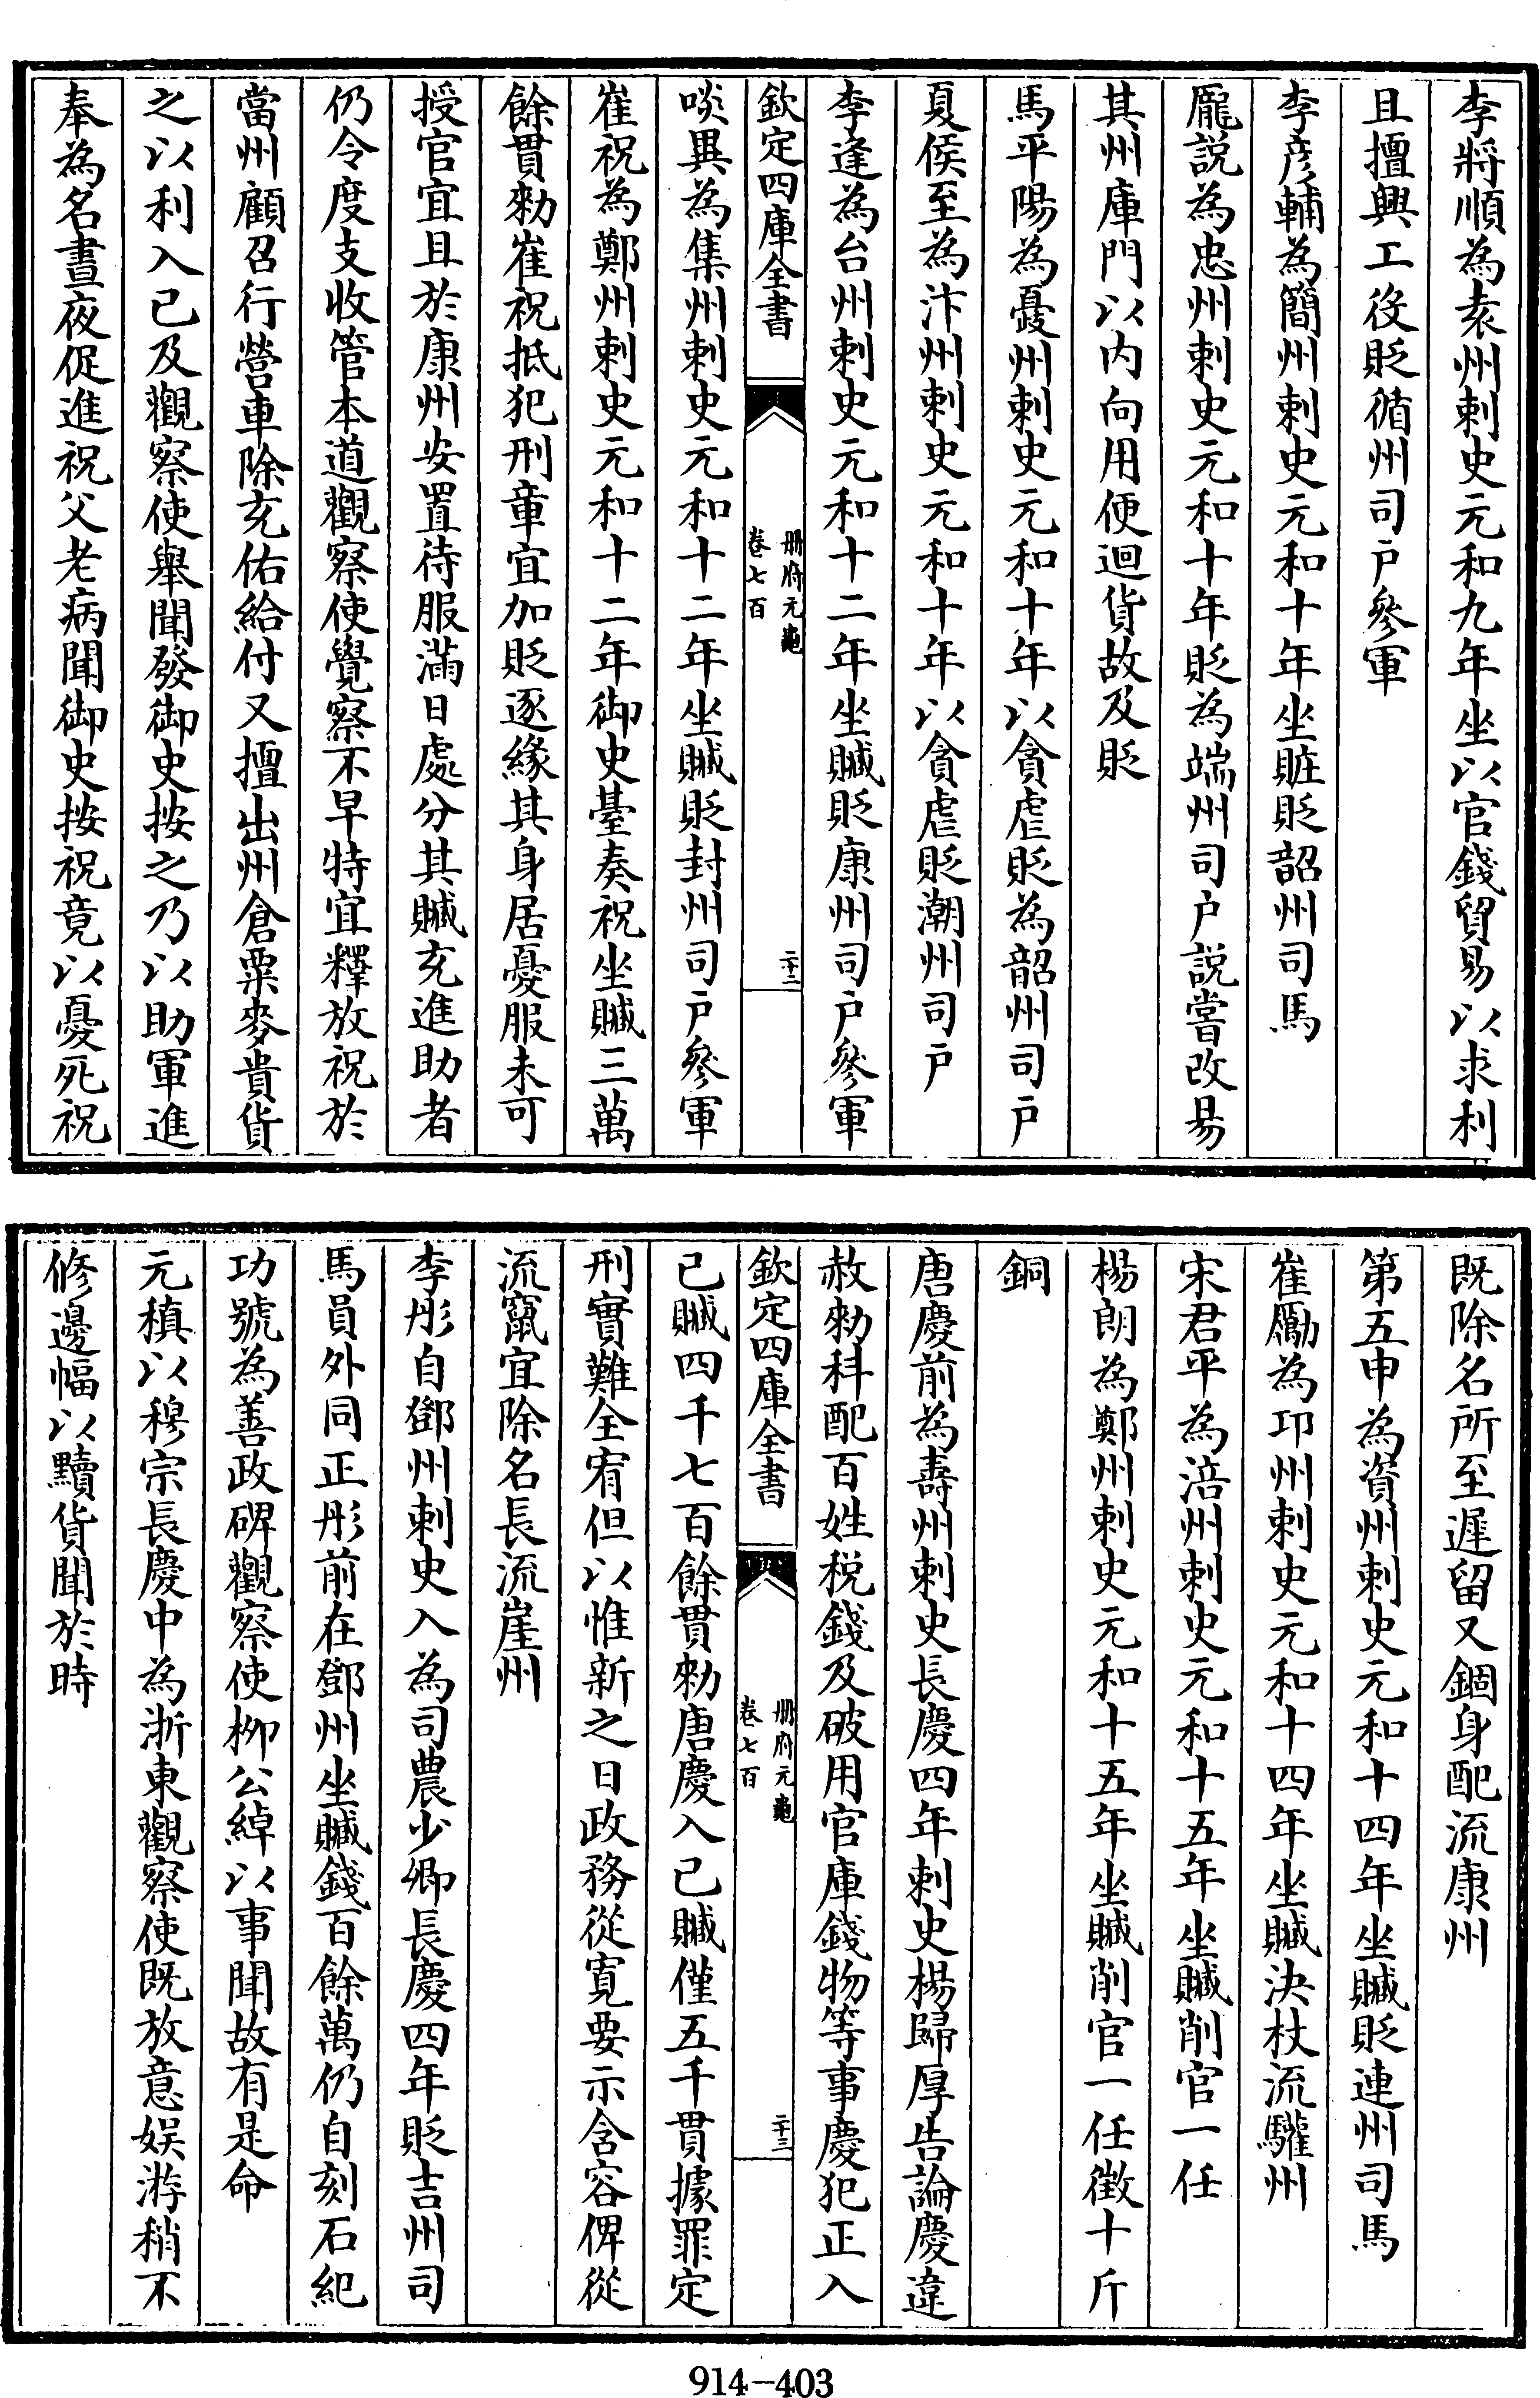 李將順為袁州刺史元和九年坐以官錢貿易以求利
且擅興工役貶循州司戶參軍
李彥輔為簡州刺史元和十年坐賍貶韶州司馬
龎說為忠州刺史元和十年貶為端州司户說嘗改易
其州庫門以内向用便迴貨故及貶
馬平陽為憂州刺史元和十年以貪虐貶為韶州司户
夏侯至為汴州刺史元和十年以貪虐貶潮州司户
李逢為台州刺史元和十二年坐贓貶康州司户參軍
欽定四庫全書
册府元龜
卷七百
二十二
啖異為集州刺史元和十二年坐贓貶封州司户參軍
崔祝為鄭州刺史元和十二年御史臺奏祝坐贓三萬
餘貫勑崔祝抵犯刑章宜加貶逐緣其身居憂服未可
授官宜且於康州安置待服滿日處分其贓充進助者
仍令度支收管本道觀察使覺察不早特宜釋放祝於
當州顧召行營車除充佑給付又擅出州倉粟麥貴貨
之以利入已及觀察使舉聞發御史按之乃以助軍進
奉為名晝夜促進祝父老病聞御史按祝竟以憂死祝
既除名所至遲留又錮身配流康州
第五申為資州刺史元和十四年坐贓貶連州司馬
崔勵為邛州刺史元和十四年坐贓決杖流驩州
宋君平為涪州刺史元和十五年坐贓削官一任
楊朗為鄭州刺史元和十五年坐贓削官一任徵十斤
銅
唐慶前為壽州刺史長慶四年刺史楊歸厚告論慶違
赦勑科配百姓稅錢及破用官庫錢物等事慶犯正入
欽定四庫全書
册府元龜
卷七百
二十三
已贓四千七百餘貫勑唐慶入已贓僅五千貫據罪定
刑實難全宥但以惟新之日政務從寛要示含容俾從
流竄宜除名長流崖州
李彤自鄧州刺史入為司農少卿長慶四年貶吉州司
馬員外同正彤前在鄧州坐贓錢百餘萬仍自刻石紀
功號為善政碑觀察使柳公綽以事聞故有是命
元稹以穆宗長慶中為浙東觀察使既放意娱游稍不
修邊幅以黷貨聞於時
914-403